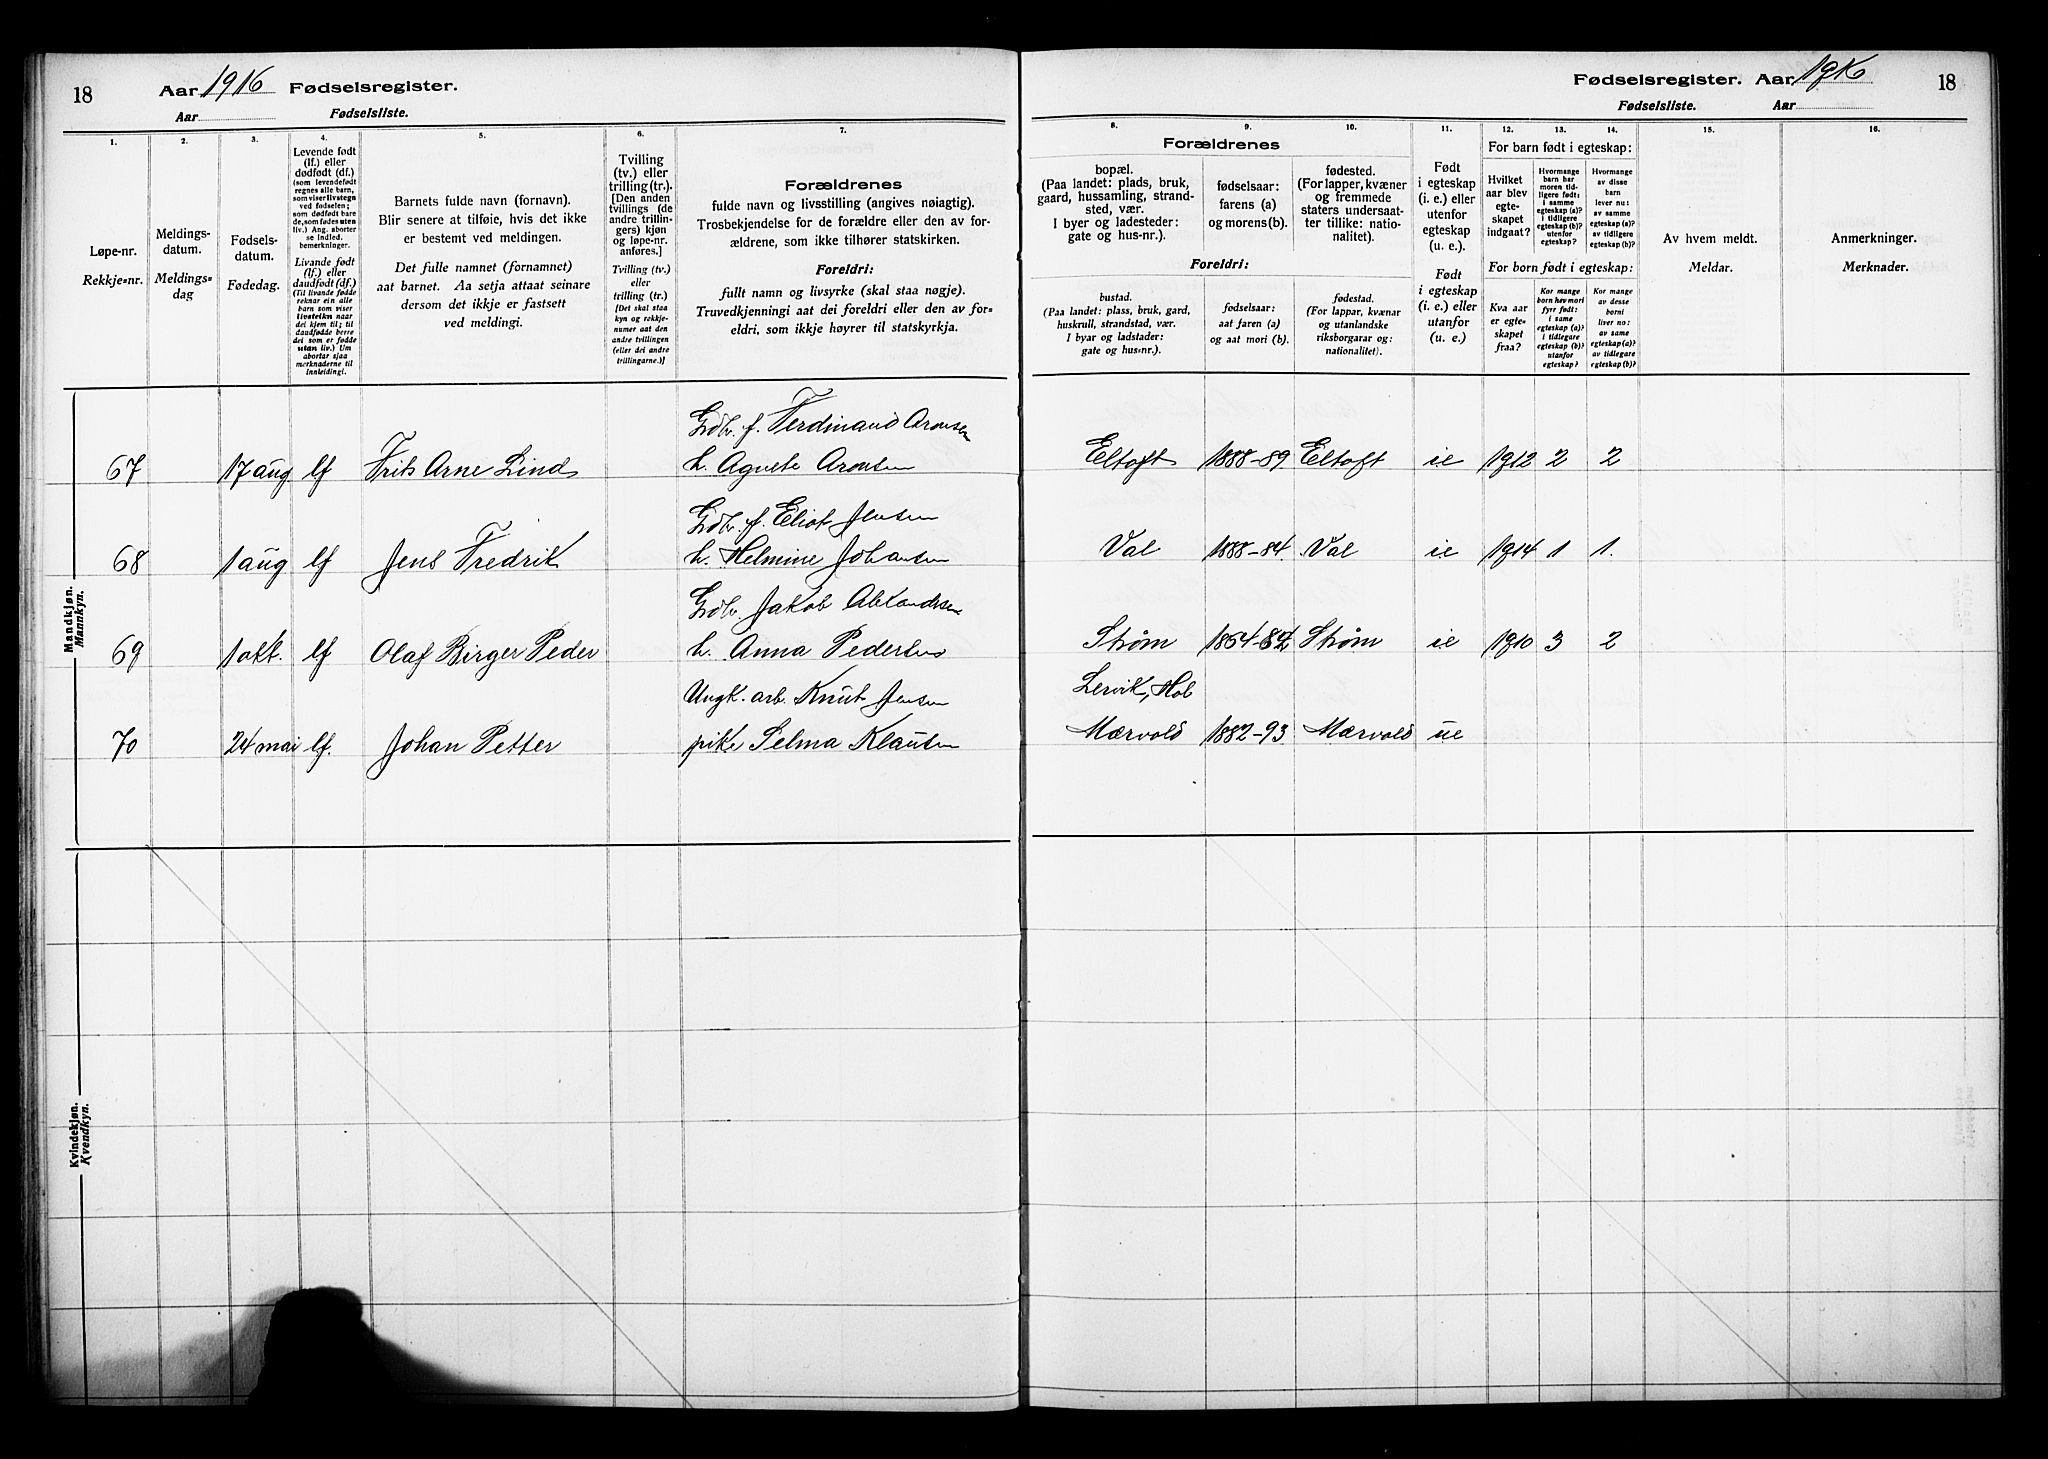 18
Aar 1916 Fødselsregister.
Aar Fødselsliste.
1.
2.
3.
4.
5.
6.
7.
Løpe-nr.
Rekkje=nr.
Meldings-
datum.
Meldings=
dag
Fødsels-
datum.
Fødedag.
Levende født
(lf.) eller
dødfødt (df.)
(som levendefødt
regnes alle barn,
som viser livstegn
ved fødselen;
som dødfødt bare
de, som fødes uten
liv.) Ang. aborter
se indled.
bemerkninger.
Livande født
(lf.) eller
daudfødt (df.)
(Til livande fødde
reknar ein alle
born som viser
livsteikn naar
dei kjem til; til
daudfødde berre
dei som er fødde
utan liv.) Um
abortar sjaa
merknaderne til
innleidingi.
Barnets fulde navn (fornavn).
Blir senere at tilføie, hvis det ikke
er bestemt ved meldingen.
Det fulle namnet (fornamnet)
aat barnet. Aa setja attaat seinare
dersom det ikkje er fastsett
ved meldingi.
Tvilling
(tv.) eller
trilling (tr.).
[Den anden
tvillings (de
andre trillin-
gers) kjøn
og løpe-nr.
anføres.]
Tvilling (tv.)
eller
trilling (tr.)
[Det skal staa
kyn og rekkje-
numer aat den
andre tvillingen
(eller dei andre
trillingarne.)]
Forældrenes
fulde navn og livsstilling (angives nøiagtig).
Trosbekjendelse for de forældre eller den av for-
ældrene, som ikke tilhører statskirken.
Foreldri:
fullt namn og livsyrke (skal staa nøgje).
Truvedkjenningi aat dei foreldri eller den av for=
eldri, som ikkje høyrer til statskyrkja.
Mandkjøn.
Mannkyn.
Gdbr. f. Ferdinand Aronsen
67 17 aug lf Frits Arne Lind h. Agnete Aronsen
Gdbr. f. Eliot Jensen
68 1 aug lf Jens Fredrik h. Helmine Johansen
Gdbr. Jakob
69 1 okt. lf Olaf Birger Peder h. Anna Pedersen
Ungk. arb. Knut Jensen
70 24 mai lf. Johan Petter pike Selma Klausen
Kvindekjøn.
Kvendkyn.
Fødselsregister. Aar 1916 18
Fødselsliste. Aar
8.
9.
10.
11.
12.
13.
14.
15.
16.
Forældrenes
bopæl.
(Paa landet: plads, bruk,
gaard, hussamling, strand-
sted, vær.
I byer og ladesteder:
gate og hus-nr.).
fødselsaar:
farens (a)
og morens (b).
fødested.
(For lapper, kvæner
og fremmede
staters undersaat-
ter tillike: natio-
nalitet).
Foreldri:
bustad.
(Paa landet: plass, bruk, gard,
huskrull, strandstad, vær.
I byar og ladstader:
gate og hus=nr.).
fødselsaar:
aat faren (a)
og aat mori (b).
fødestad.
(For lappar, kvænar
og utanlandske
riksborgarar og:
nationalitet).
Født
i egteskap
(i. e.) eller
utenfor
egteskap
(u. e.).
Født
i egteskap
(i. e.) eller
utanfor
(u. e.)
For barn født i egteskap:
Hvilket
aar blev
egte-
skapet
indgaat?
Hvormange
barn har
moren tid-
ligere født:
i samme
egteskap (a)?
i tidligere
egteskap (b)?
utenfor
egteskap?
Hvormange
av disse
barn
lever nu:
av samme
egteskap (a)?
av tidligere
egteskap (b)?
For born født i egteskap:
Kva aar
er egte-
skapet
fraa?
Kor mange
born hev mori
fyrr født:
i same
egteskap (a)?
i tidlegare
egteskap (b)?
utanfor
egteskap?
Kor mange
av desse
borni
liver no:
av same
egteskap (a)?
av tidlegare
egteskap (b)?
Av hvem meldt.
Meldar.
Anmerkninger.
Merknader.
Eltoft 1888-89 Eltoft ie 1912 2 2
Val 1888-84. Val ie 1914 1 1.
Strøm Strøm ie 1910 3 2
Lervik, Hol
Mærvold 1882-93 Mærvold ue